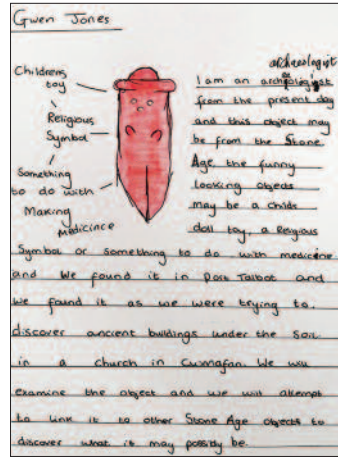 Gwen Jones
Childrens
toy
Religious
Symbol
Something
to do with
Making
Medicince
archaeologist
I am an
from the present day
and this object may
be from the Stone
Age. the funny
looking objects
may be a childs
doll toy, a Religious
Symbol or something to do with medicine
and we found it in Port Talbot and
We found it as we were trying to.
discover ancient buildings under the soil
in a church in Cwmafan. We will
examine the object and we will attempt
to link it to other Stone Age objects to
discover what it may possibly be.